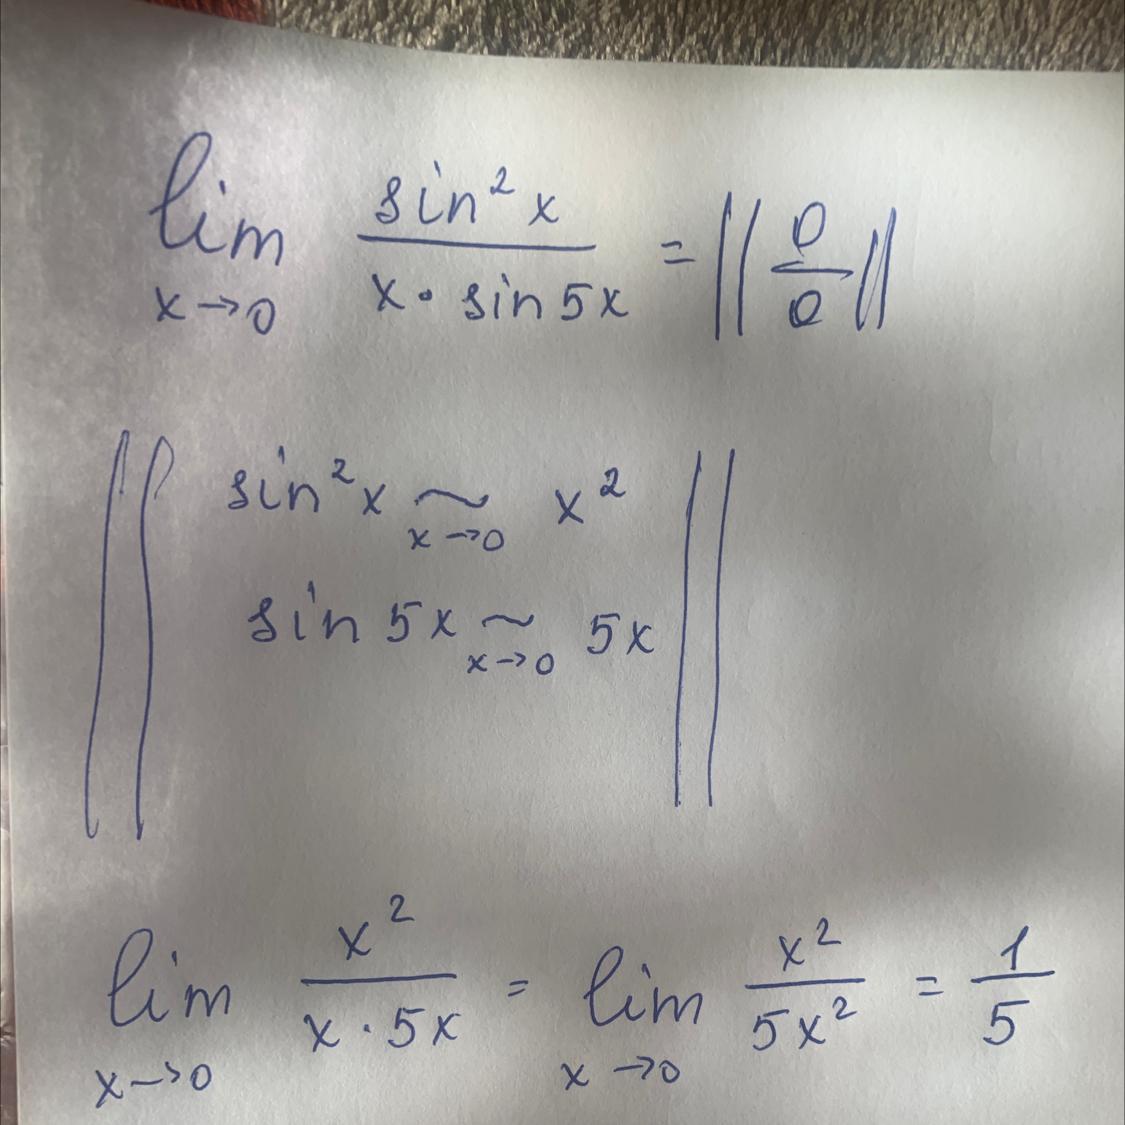 lim x→0 sin² x / x · sin 5x = || 0/0 ||
|| sin² x ~ x→0 x² ||
sin 5x ~ x→0 5x
lim x→0 x² / x · 5x = lim x→0 x² / 5x² = 1/5